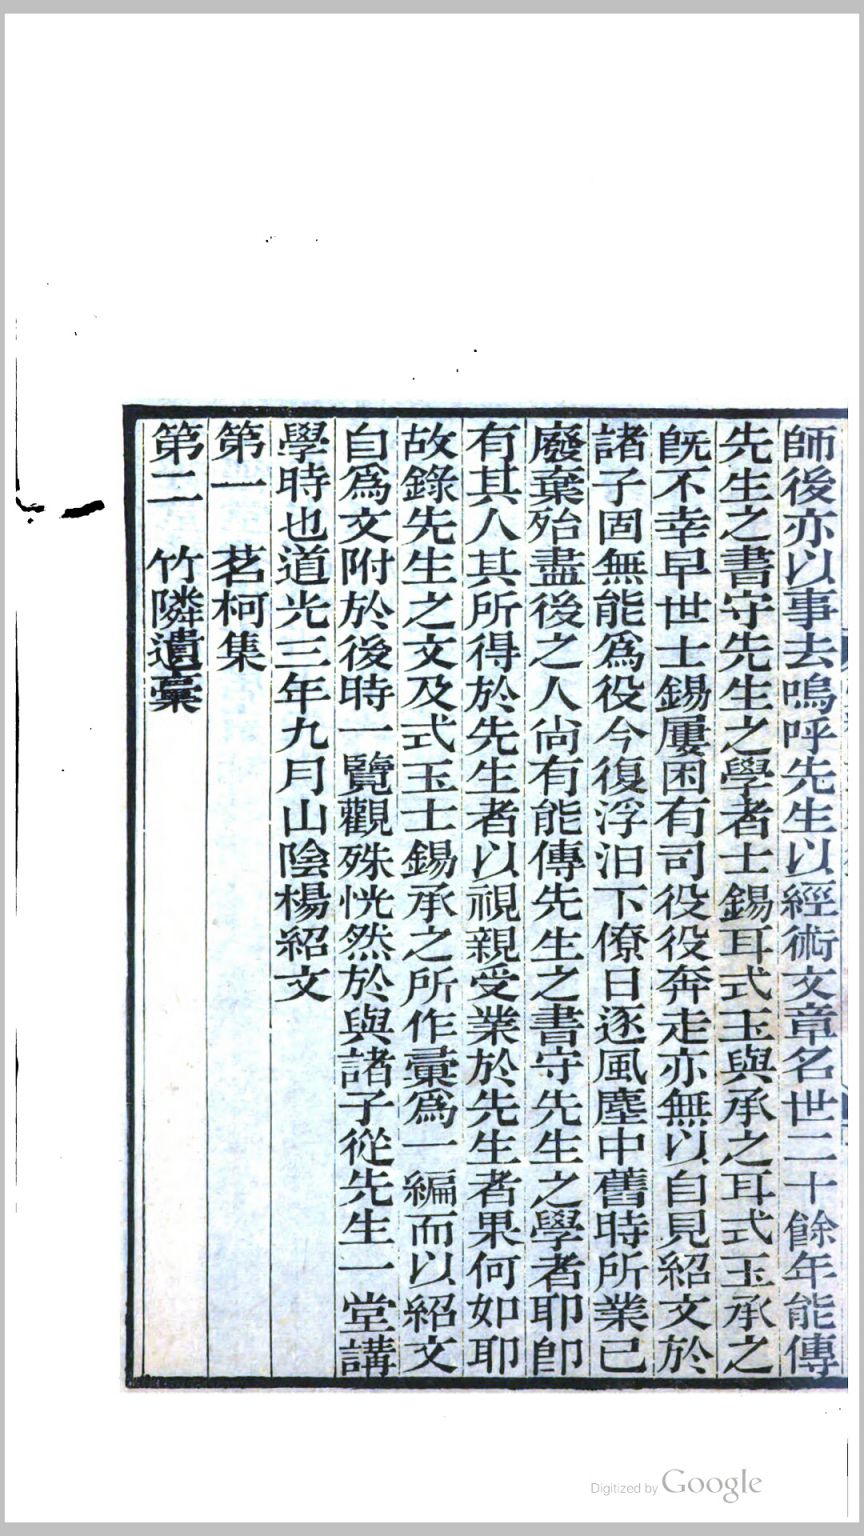 師後亦以事去嗚呼先生以經術文章名世二十餘年能傳
先生之書守先生之學者士錫耳式玉與承之耳式玉承之
旣不幸早世士錫屢困有司役役奔走亦無以自見紹文於
諸子固無能爲役今復浮汨下僚日逐風塵中舊時所業已
廢棄殆盡後之人尙有能傳先生之書守先生之學者耶卽
有其人其所得於先生者以視親受業於先生者果何如耶
故錄先生之文及式玉士錫承之所作彙爲一編而以紹文
自爲文附於後時一覽觀殊恍然於與諸子從先生一堂講
學時也道光三年九月山陰楊紹文
第一　茗柯集
第二　竹隣遺稾
Digitized by Google